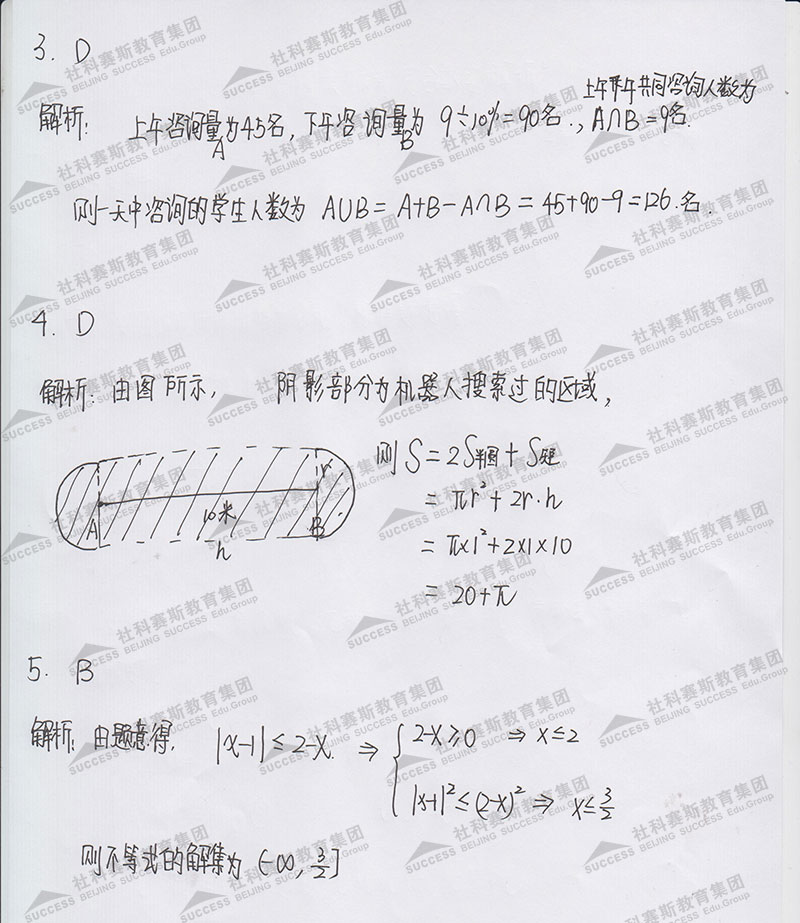 3. D
上午下午共同咨询人数为
解析: 上午咨询量为45名, 下午咨询量为 9÷10%=90名., A∩B=9名.
A B
则一天中咨询的学生人数为 A∪B= A+B-A∩B = 45+90-9=126.名.
4. D
解析: 由图所示, 阴影部分为机器人搜索过的区域,
则 S = 2S半圆 + S矩
= πr²+2r·h
= π×1²+2×1×10
= 20+π
r
A 10米 B
h
5. B
解析: 由题意得, |x-1| ≤ 2-x. ⇒ { 2-x≥0 ⇒ x≤2
|x-1|²≤(2-x)² ⇒ x≤3/2
则不等式的解集为 (-∞, 3/2]
社科赛斯教育集团
BEIJING SUCCESS Edu.Group
SUCCESS